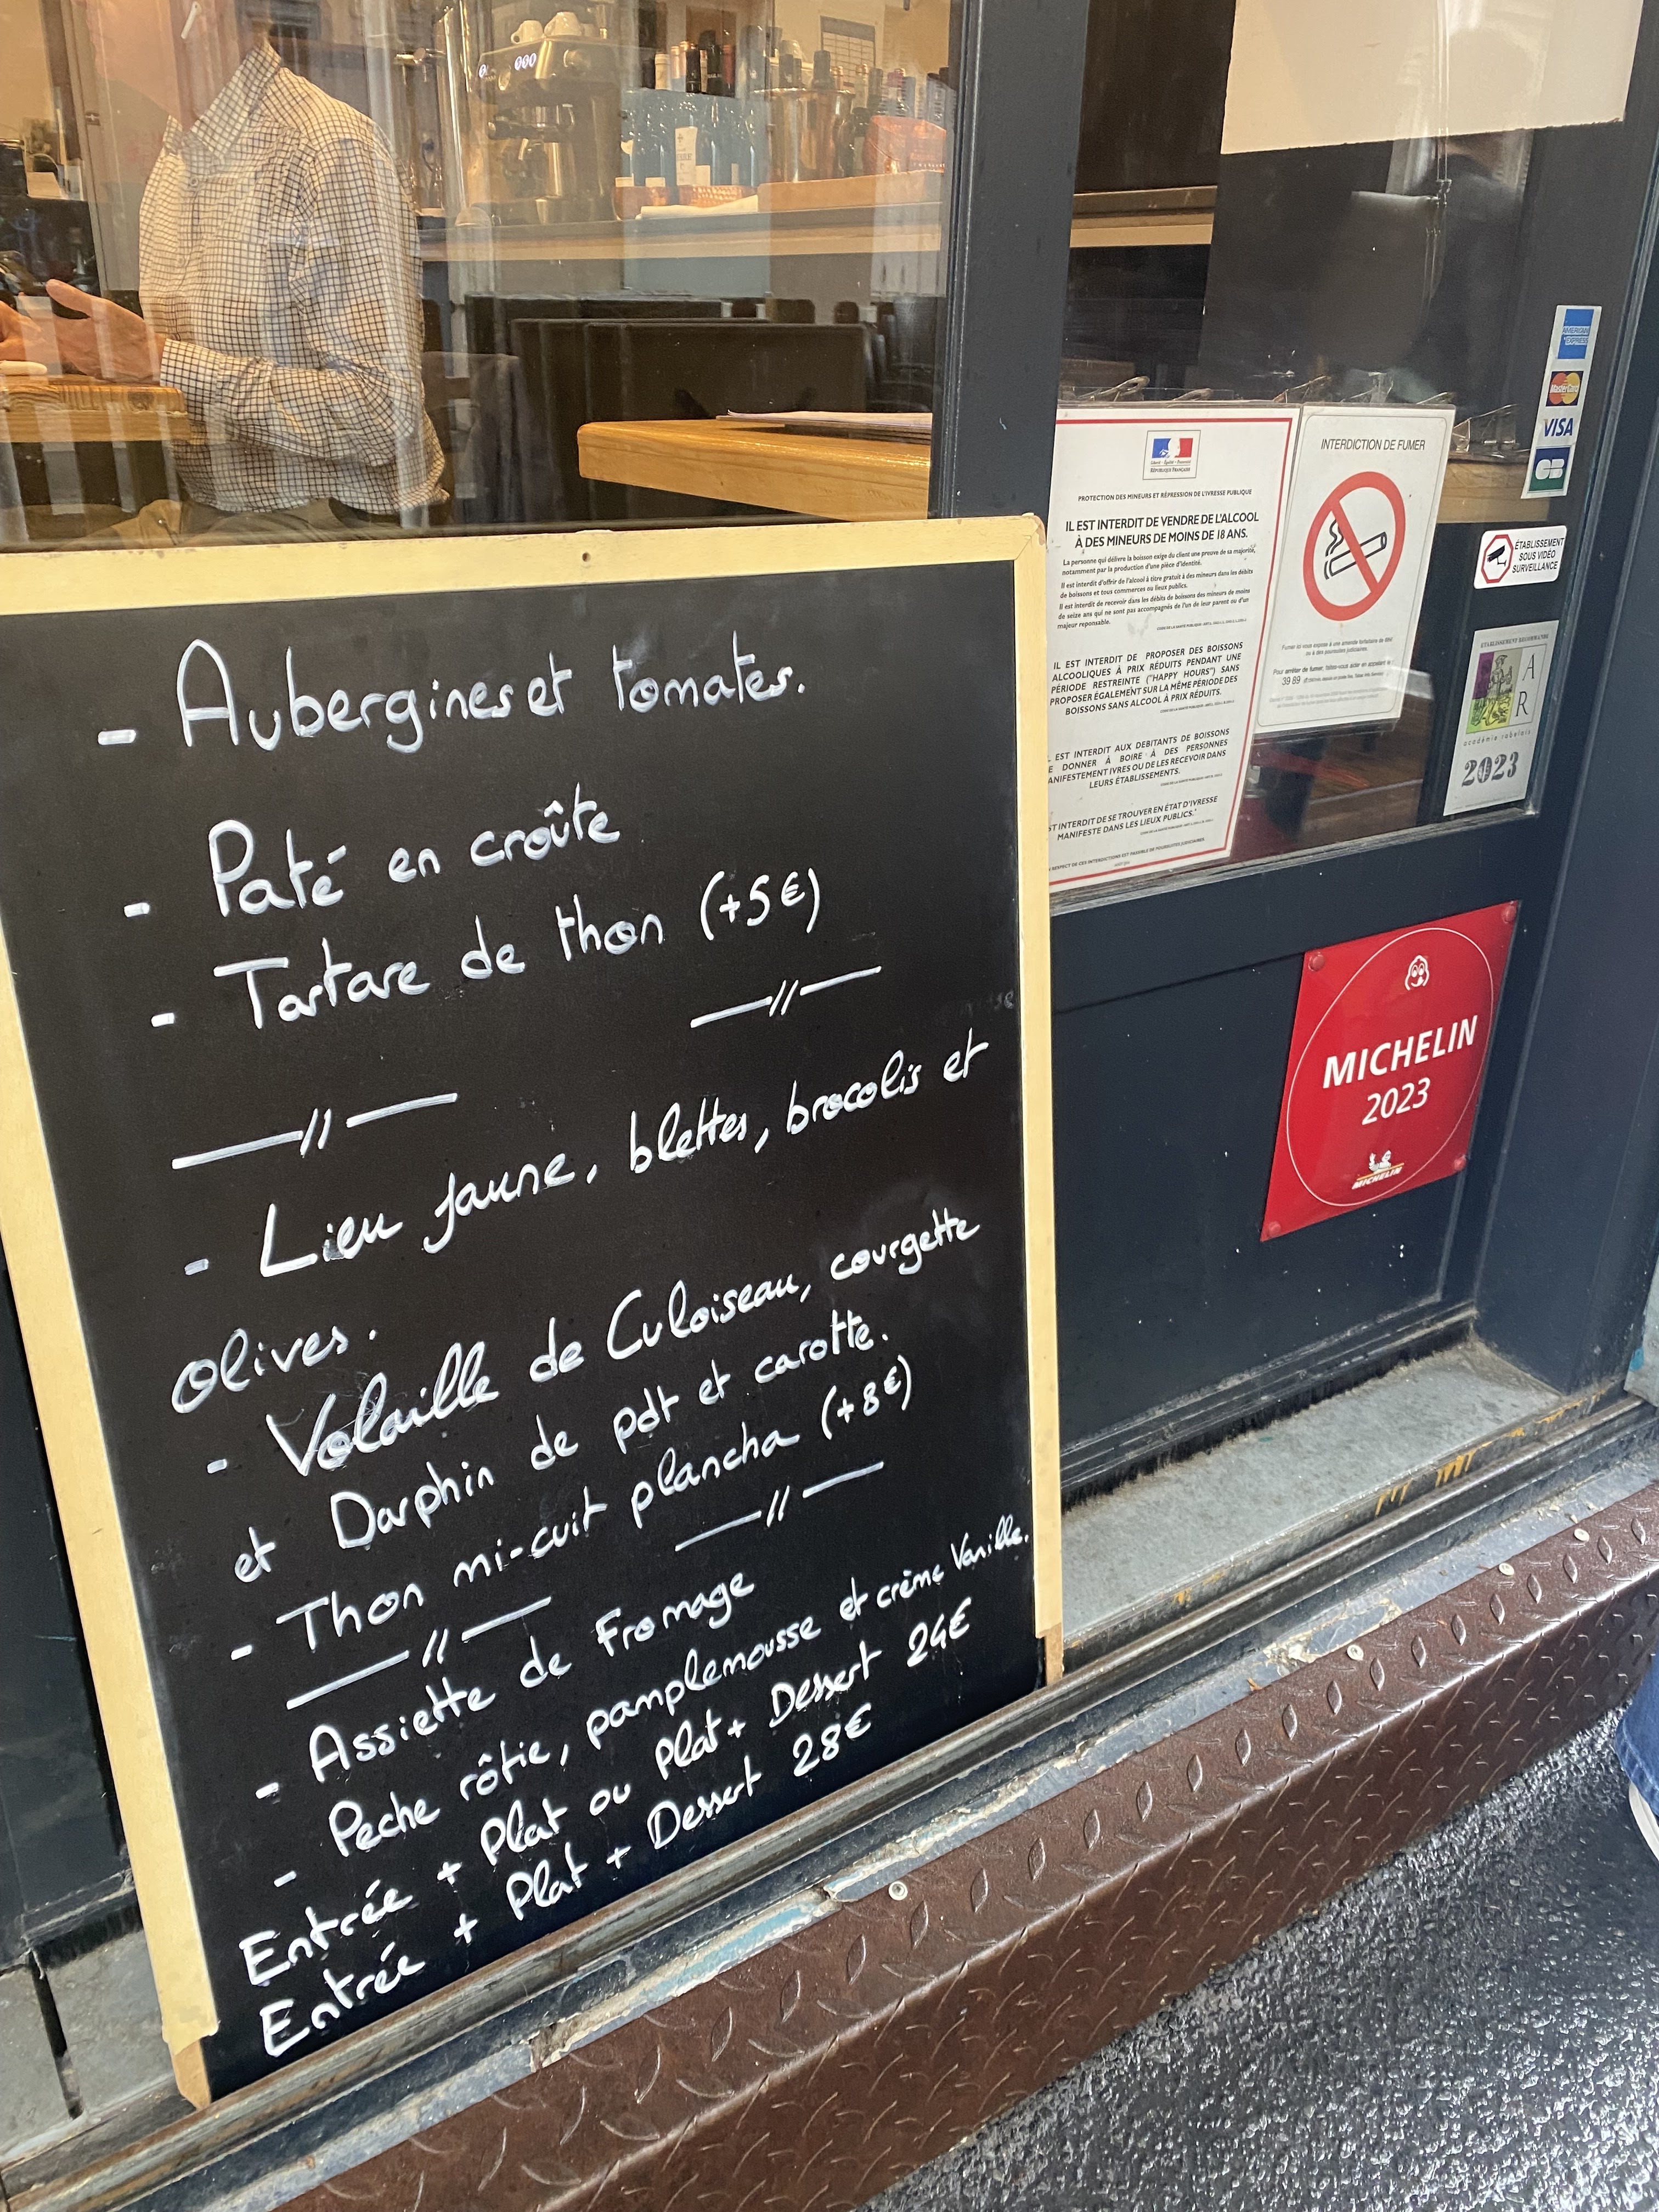 - Aubergines et tomates.
- Paté en croûte
- Tartare de thon (+5€)
- Lieu jaune, blettes, brocolis et
olives.
- Volaille de Culoiseau, courgette
et Darphin de pdt et carotte.
- Thon mi-cuit plancha (+8€)
- Assiette de fromage
- Peche rôtie, pamplemousse et crème Vanille.
Entrée + Plat ou Plat + Dessert 24€
Entrée + Plat + Dessert 28€
RÉPUBLIQUE FRANÇAISE
PROTECTION DES MINEURS ET RÉPRESSION DE L'IVRESSE PUBLIQUE
IL EST INTERDIT DE VENDRE DE L'ALCOOL
À DES MINEURS DE MOINS DE 18 ANS.
La personne qui délivre la boisson exige du client une preuve de sa majorité,
notamment par la production d'une pièce d'identité.
Il est interdit d'offrir de l'alcool à titre gratuit à des mineurs dans les débits
de boissons et tous commerces ou lieux publics.
Il est interdit de recevoir dans les débits de boissons des mineurs de moins
de seize ans qui ne sont pas accompagnés de l'un de leur parent ou d'un
majeur reponsable.
IL EST INTERDIT DE PROPOSER DES BOISSONS
ALCOOLIQUES À PRIX RÉDUITS PENDANT UNE
PÉRIODE RESTREINTE ("HAPPY HOURS") SANS
PROPOSER ÉGALEMENT SUR LA MÊME PÉRIODE DES
BOISSONS SANS ALCOOL À PRIX RÉDUITS.
EST INTERDIT AUX DEBITANTS DE BOISSONS
DONNER À BOIRE À DES PERSONNES
MANIFESTEMENT IVRES OU DE LES RECEVOIR DANS
LEURS ÉTABLISSEMENTS.
INTERDIT DE SE TROUVER EN ÉTAT D'IVRESSE
MANIFESTE DANS LES LIEUX PUBLICS.
INTERDICTION DE FUMER
Fumer ici vous expose à une amende forfaitaire de
ou à des poursuites judiciaires.
Pour arrêter de fumer, faites-vous aider en appelant le
39 89
AMERICAN EXPRESS
MasterCard
VISA
CB
ÉTABLISSEMENT
SOUS VIDÉO
SURVEILLANCE
ETABLISSEMENT RECOMMANDÉ
A
R
académie rabelais
2023
MICHELIN
2023
MICHELIN